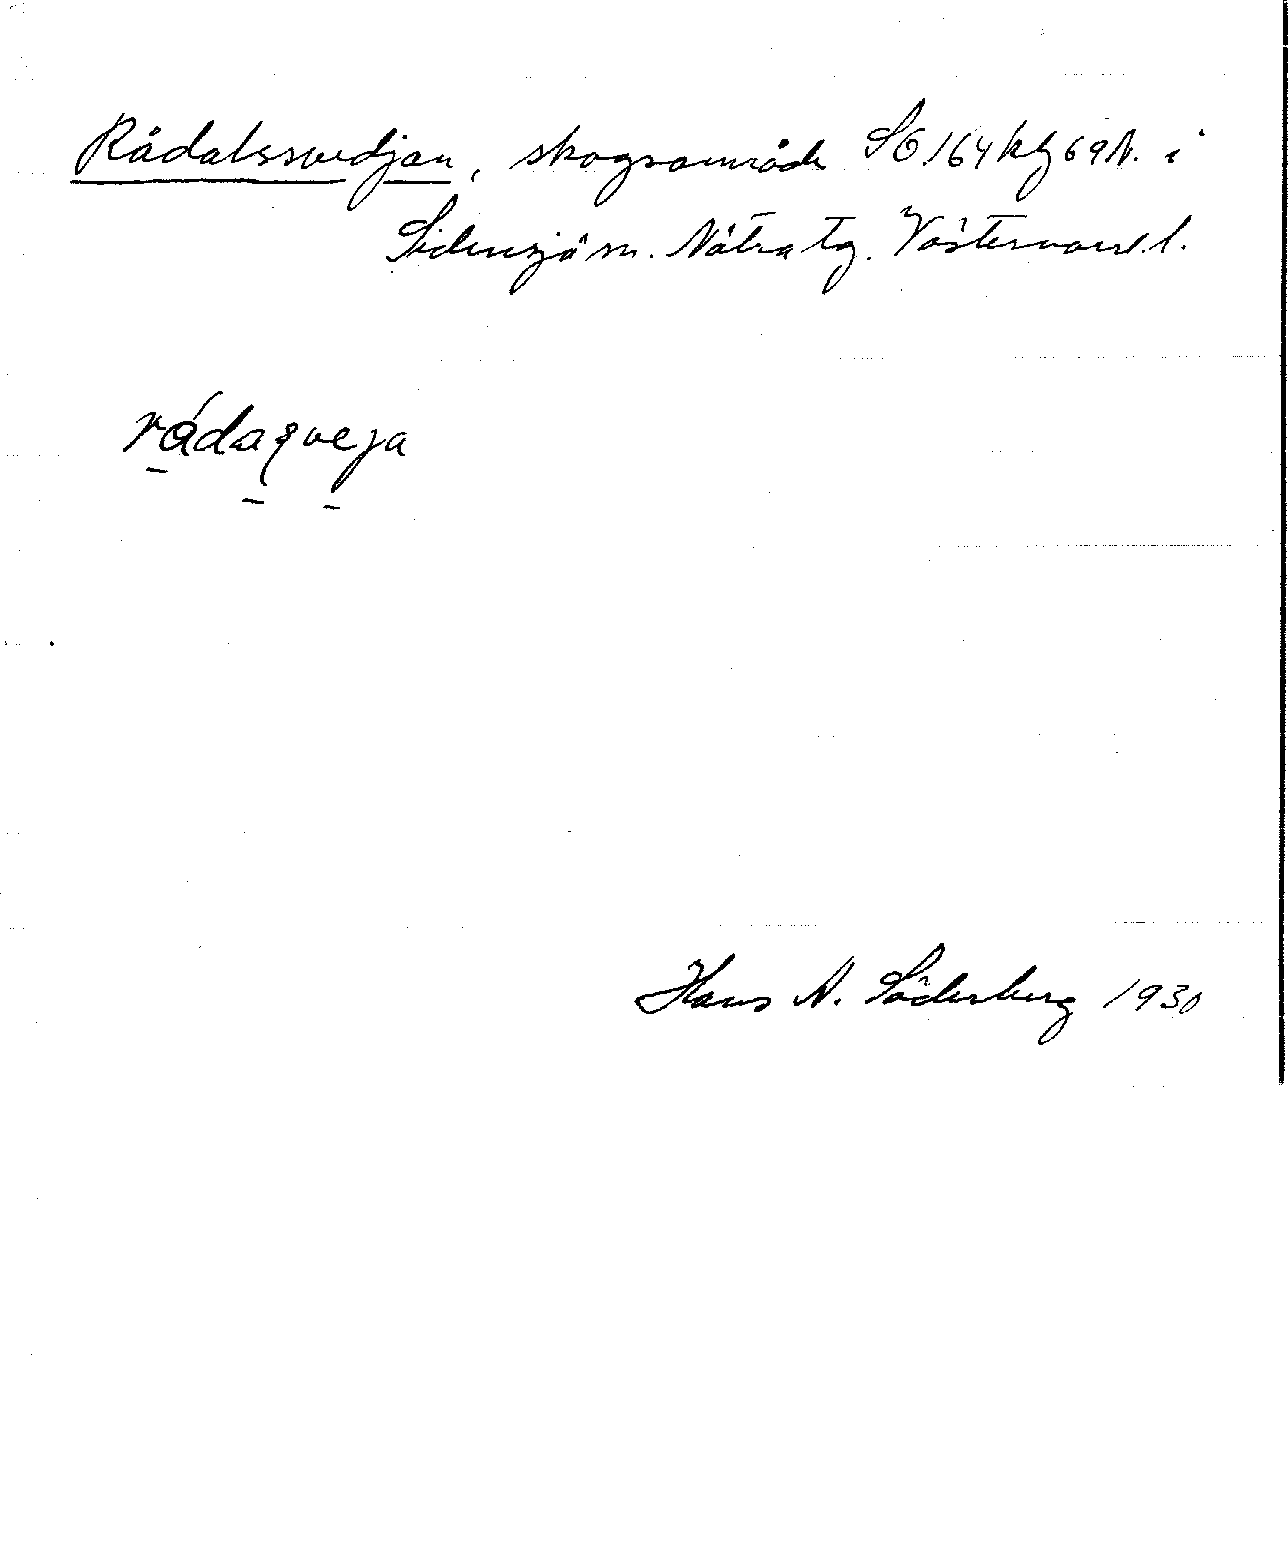 Rådalssvedjan, skogsområde SO 164 kbg 69 N. i
Sidensjö sn. Nätra tg. Västernorrl. l.
Hans N. Söderberg 1930